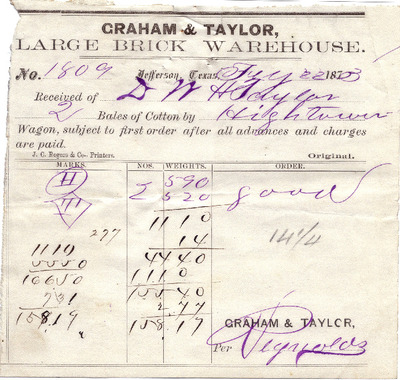 GRAHAM & TAYLOR,
LARGE BRICK WAREHOUSE.
No. 1809 Jefferson, Texas, 22 1873
Received of D W H Taylor
2 Bales of Cotton by Hightower
Wagon, subject to first order after all advances and charges
are paid.
J. C. Rogers & Co. Printers. Original.
MARKS. NOS. WEIGHTS. ORDER.
H 2 590 good
T 520
1110
277 14 14 1/4
1110 4440
5550 1110
16650 15540
731 277
15819 15817
GRAHAM & TAYLOR,
Per Reynolds